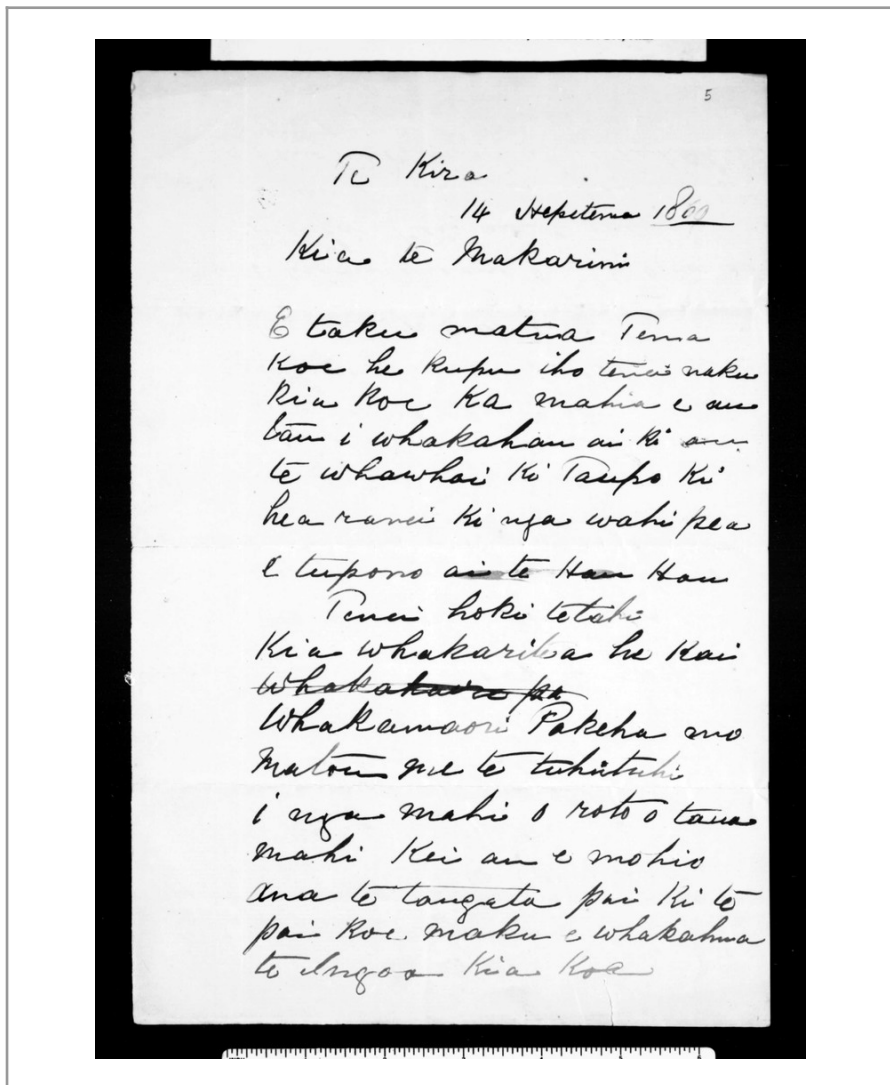 5
Te Kira
14 Hepetema 1869
Kia te Makarini
E taku matua Tena
koe he kupu iho tenei naku
kia koe Ka mahia e au
tau i whakahau ai ki au
te whawhai ki Taupo ki
hea ranei ki nga wahi pea
e tupono ai te Hau Hau
Tenei hoki tetahi
Kia whakaritea he Kai
Whakamaori Pakeha mo
matou me te tuhituhi
i nga mahi o roto o taua
mahi Kei au e mohio
ana te tangata pai Ki te
pai koe maku e whakahua
te Ingoa Kia Koe